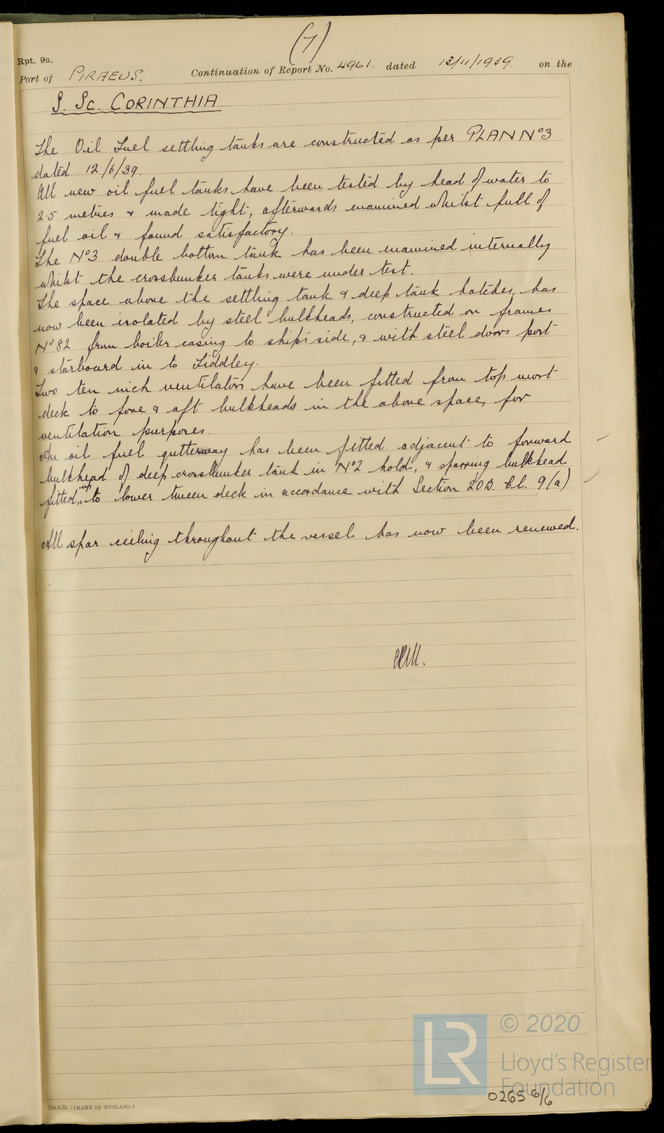 (7)
Rpt. 9a.
Port of PIRAEUS. Continuation of Report No. 4961. dated 13/11/1939 on the
S. Sc. CORINTHIA
The Oil Fuel settling tanks are constructed as per PLAN Nº3
dated 12/6/39.
All new oil fuel tanks have been tested by head of water to
2.5 metres & made tight, afterwards examined whilst full of
fuel oil & found satisfactory.
The Nº3 double bottom tank has been examined internally
whilst the crossbunker tanks were under test.
The space above the settling tank & deep tank hatches, has
now been isolated by steel bulkheads, constructed on frames
Nº82 from boiler casing to ship's side, & with steel doors port
& starboard in to Fiddley.
Two ten inch ventilators have been fitted from top most
deck to fore & aft bulkheads in the above space, for
ventilation purposes.
An oil fuel gutterway has been fitted adjacent to forward
bulkhead of deep crossbunker tank in Nº2 hold, & sparring bulkhead
fitted up to lower tween deck in accordance with Section 20B. Cl. 9(a)
All spar ceiling throughout the vessel has now been renewed.
(MADE IN ENGLAND.)
© 2020
LR
Lloyd's Register
Foundation
0265 6/6